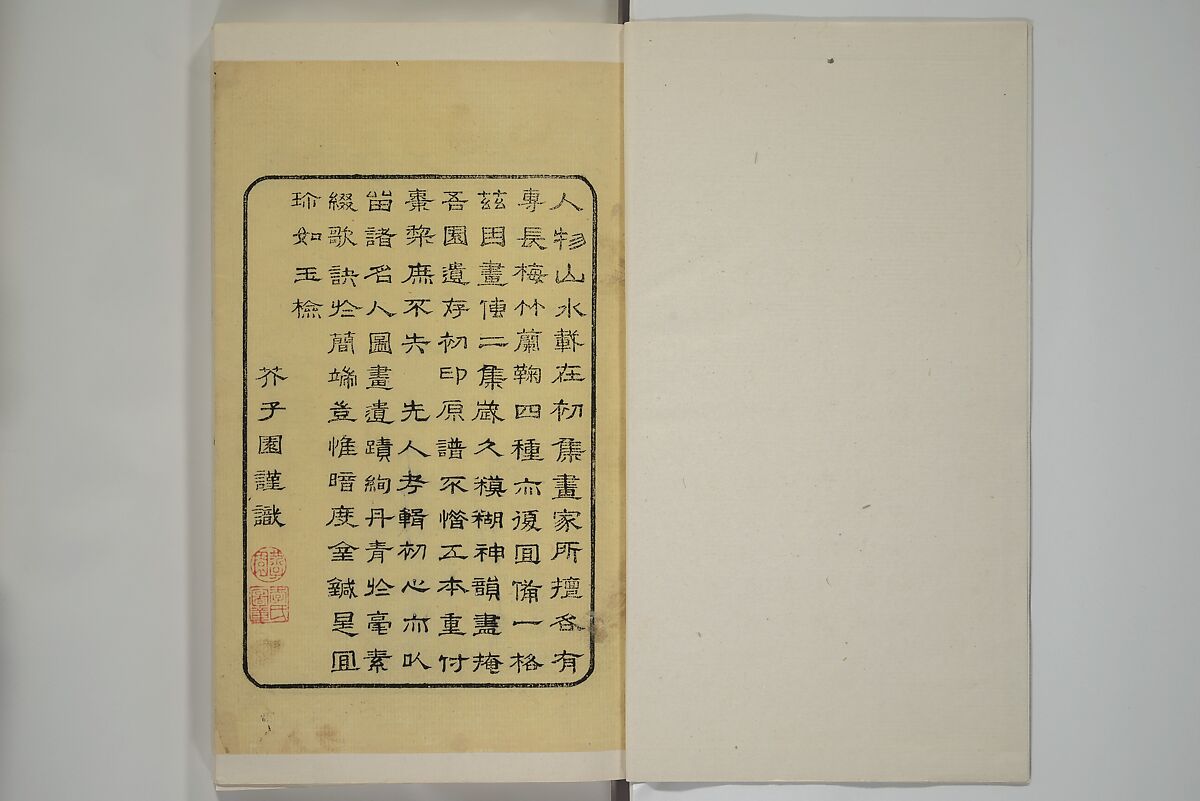 人物山水載在初集畫家所擅各有
專長梅竹蘭鞠四種亦復宜備一格
茲因畫傳二集歲久糢糊神韻盡掩
吾園遺存初印原譜不惜工本重付
棗棃庶不失 先人考輯初心亦以
留諸名人圖畫遺蹟絢丹青於毫素
綴歌訣於簡端豈惟暗度金鍼是宜
珍如玉檢
芥子園謹識